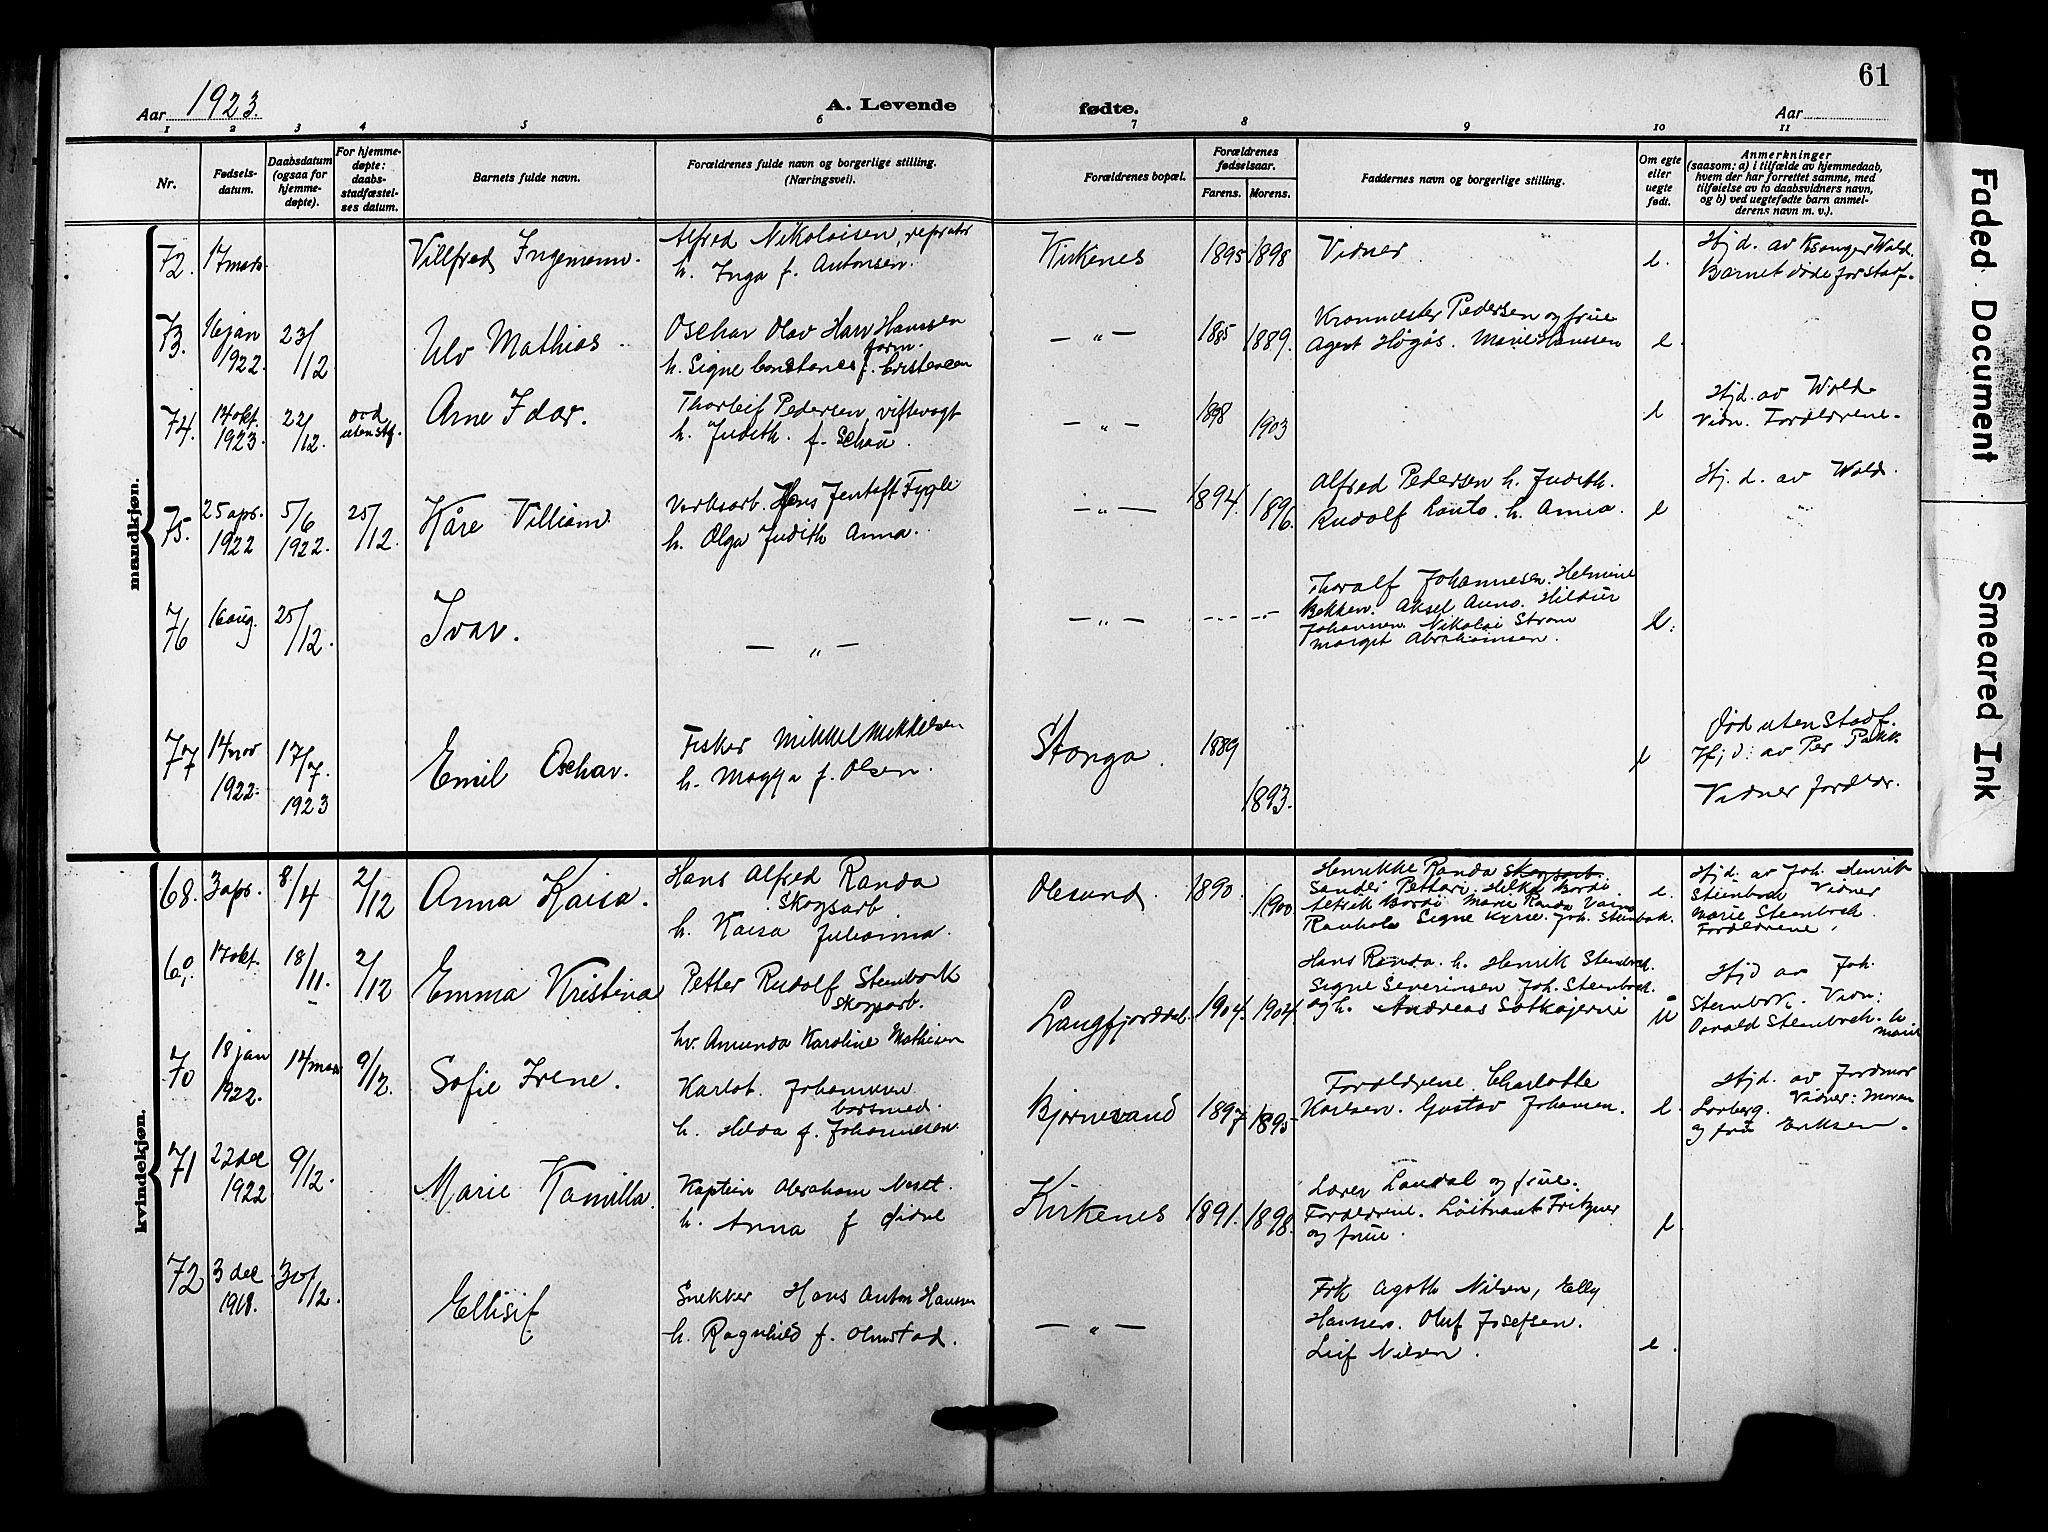 61
Aar 1923.
A. Levende fødte.
Aar
1 2 3 4 5 6 7 8 9 10 11
Nr.
Fødsels-
datum.
Daabsdatum
(ogsaa for
hjemme-
døpte).
For hjemme-
døpte:
daabs-
stadfæstel-
ses datum.
Barnets fulde navn.
Forældrenes fulde navn og borgerlige stilling.
(Næringsvei).
Forældrenes bopæl.
Forældrenes
fødselsaar.
Farens. Morens.
Faddernes navn og borgerlige stilling.
Om egte
eller
uegte
født.
Anmerkninger
(saasom: a) i tilfælde av hjemmedaab,
hvem der har forrettet samme, med
tilføielse av to daabsvidners navn,
og b) ved uegtefødte barn anmel-
derens navn m. v.).
mandkjøn.
72. 17 mars
Villfred Ingemann.
Alfred Nikolaisen, repratør
h. Inga f. Antonsen.
Kirkenes 1895 1898 Vidner. e.
Hjd. av Wald.
Barnet døde for stadf.
73. 16 jan 1922. 23/12
Ulv Mathias.
Oschar Olav Hansen
form.
h. Signe Constance f. Cristensen
— " — 1885 1889.
Pedersen og frue
Agent Høgås. Marie Hanssen e.
74. 14 okt. 1923. 22/12. død uten stf.
Arne Idar.
Thorleif Pedersen, viftevagt
h. Judith. f. Schau.
— " — 1898 1903 e
Hjd. av Wald.
Vidn. Forældrene.
75. 25 apr. 1922 5/6 1922. 25/12.
Kåre Villiam
Verksarb. Hans Jentoft Fygle
h. Olga Judith Anna.
— " — 1894. 1896.
Alfred Pedersen h. Judith.
Rudolf h. Anna. e
Hj. d. av Wald.
"
76 16 aug. 25/12.
Ivar.
— " —
— " —
Thoralf Johannesen. Helmine
Bekken. Aksel Hildur
Johansen. Nikolai Strøm
Margit Abrahamsen. e.
77 14 nov 1922. 17/7. 1923
Emil Oschar.
Fisker Mikkel Mikkelsen
h. Magga f. Olsen.
Stonga. 1889 1893. e
Død uten Stadf.
Hjd: av Per
Vidner foreldr.
kvindekjøn.
68. 3 apr. 8/4 2/12
Anna Kaisa.
Hans Alfred Randa
Skogsarb
h. Kaisa Julianna.
Olesund. 1890. 1900.
Henrikke Randa
Signe Joh. Steinbak. e.
Hjd. av Joh. Henrik
Steinbock Vidner
Marie Steinboch.
Foreldrene.
69. 17 okt. 18/11. 2/12
Emma Kristina
Petter Rudolf Steinbock
Skogsarb.
hv. Amunda Karoline Mathisen
Langfjorddal. 1904. 1904.
Hans Randa. h. Henrik Steinboch.
Signe Severinsen Joh. Steinboch.
og h. Andreas U
Hjd av Joh.
Steinbok. Vidn:
Osvald Steinboch. h
Marie
70 18 jan 1922. 14 mars 9/12.
Sofie Irene.
Karlot. Johannesen
h. Hilda f. Johannesen.
Bjørnevand 1897 1895
Foreldrene. Charlotte
Karlsen. Gustav Johansen. e.
Hjd. av Jordmor
Lorberg. Vidner:
og fru Eriksen.
71 22 dec 1922 9/12.
Marie Kamilla.
Kaptein Abraham
h. Anna f
Kirkenes 1891. 1898.
Lærer Landal og frue.
Foreldrene. Løitnant Fritzner
og frue. e.
72 3 dec 1918. 30/12.
Ellisif
Snekker Hans Anton Hansen
h. Ragnhild f. Olmstad.
— " —
Frk Agoth Nilsen, Elly
Hansen. Oluf Josefsen.
Leif Nilsen. e.
Faded Document
Smeared Ink